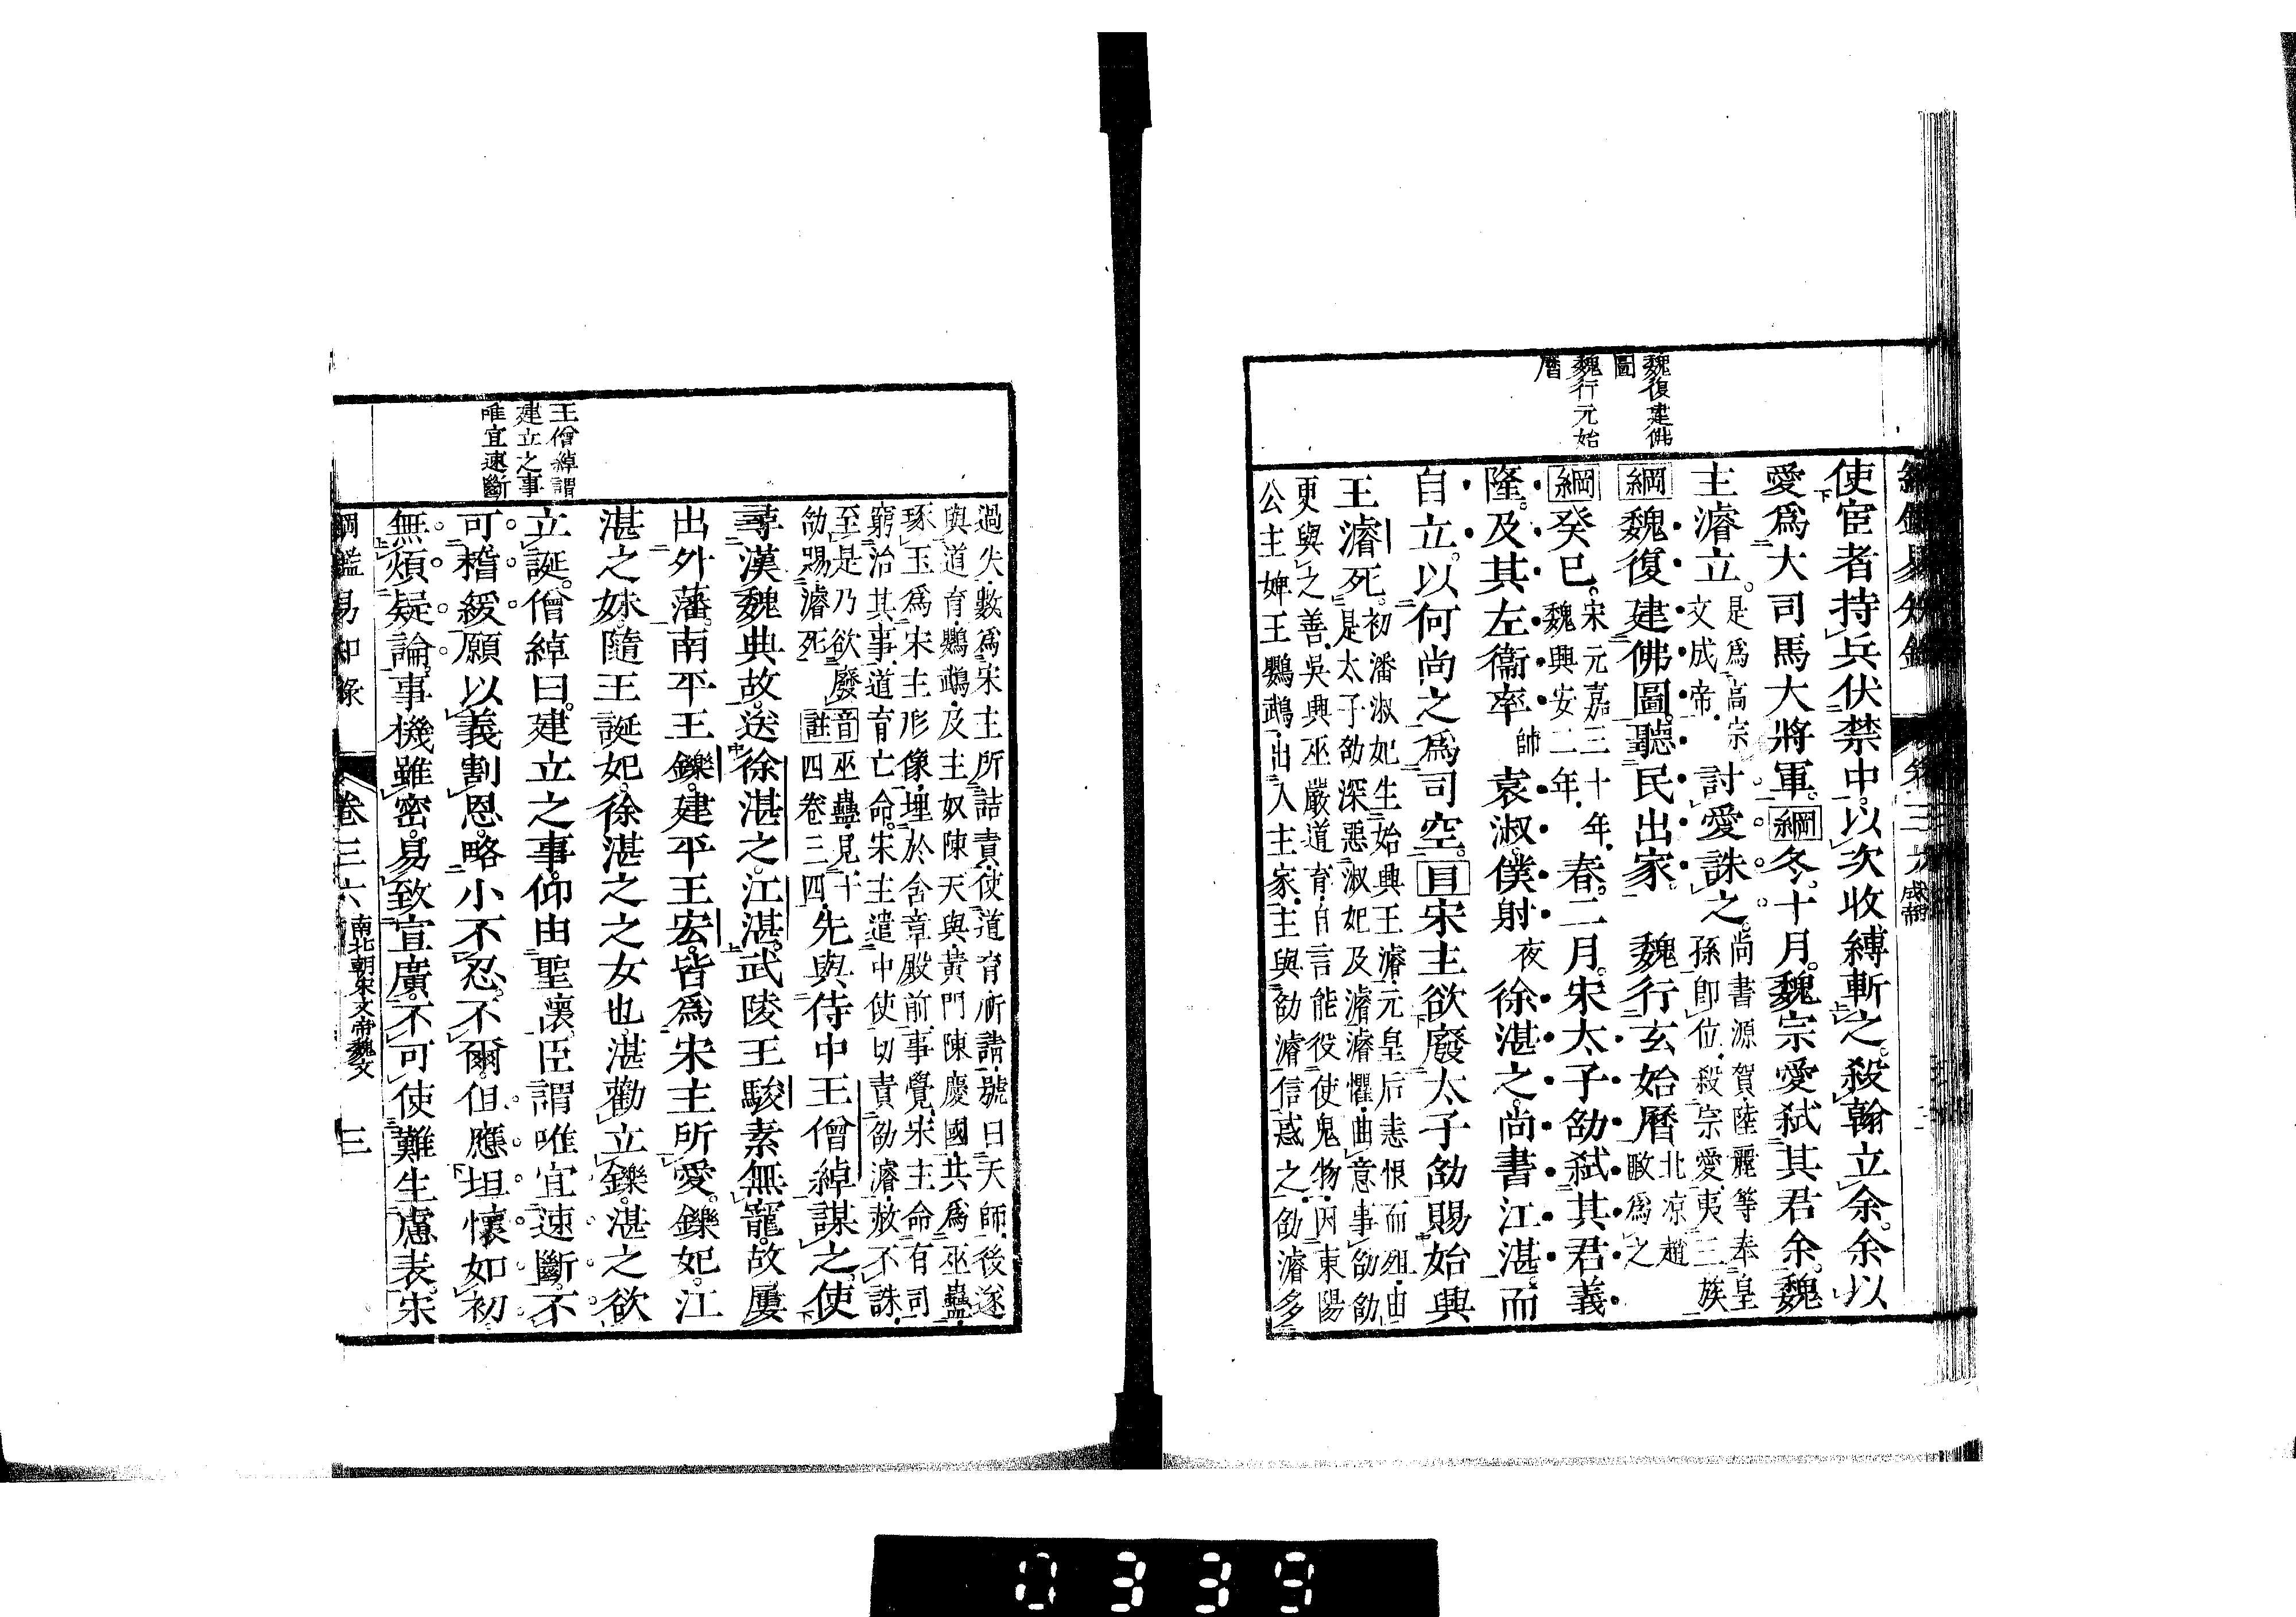 魏復建佛
圖
魏行元始
曆
使宦者持兵伏禁中以次收縛斬之殺翰立余余以
愛爲大司馬大將軍綱冬十月魏宗愛弑其君余魏
主濬立是爲高宗文成帝討愛誅之尚書源賀陸麗等奉皇孫卽位殺宗愛夷三族
綱魏復建佛圖聽民出家　魏行玄始曆北凉趙𢾺爲之
綱癸巳宋元嘉三十年魏興安二年春二月宋太子劭弑其君義
隆及其左衞率帥袁淑僕射夜徐湛之尚書江湛而
自立以何尚之爲司空目宋主欲廢太子劭賜始興
王濬死初潘淑妃生始興王濬元皇后恚恨而殂由
是太子劭深惡淑妃及濬濬懼曲意事劭劭
更與之善吳興巫嚴道育自言能役使鬼物因東陽
公主婢王鸚鵡出入主家主與劭濬信惑之劭濬多
王僧綽謂
建立之事
唯宜速斷
過失數爲宋主所詰責使道育祈請號曰天師後遂
與道育鸚鵡及主奴陳天與黃門陳慶國共爲巫蠱
琢玉爲宋主形像埋於含章殿前事覺宋主命有司
窮治其事道育亡命宋主遣中使切責劭濬赦不誅
至是乃欲廢劭賜濬死音註巫蠱見十四卷三四先與侍中王僧綽謀之使
尋漢魏典故送徐湛之江湛武陵王駿素無寵故屢
出外藩南平王鑠建平王宏皆爲宋主所愛鑠妃江
湛之妹隨王誕妃徐湛之之女也湛勸立鑠湛之欲
立誕僧綽曰建立之事仰由聖懷臣謂唯宜速斷不
可稽緩願以義割恩略小不忍不爾但應坦懷如初
無煩疑論事機雖密易致宣廣不可使難生慮表宋
綱鑑易知錄　卷三六　南北朝宋文帝魏文　三